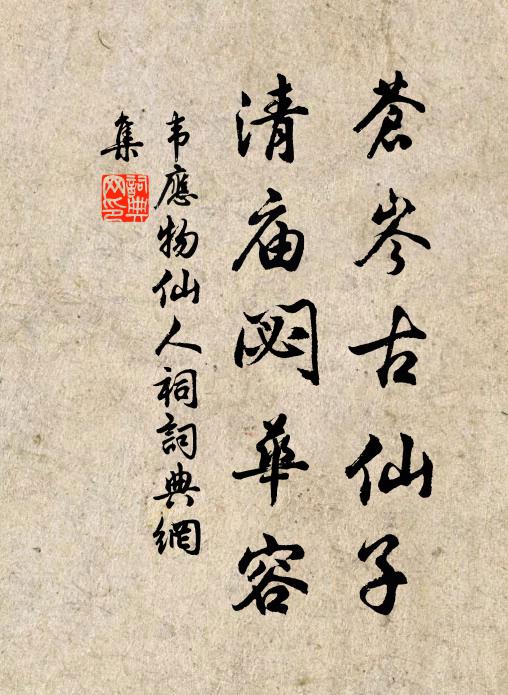 蒼岑古仙子
清庙閟華容
韦應物仙人祠詞典網
集
詞典
网印